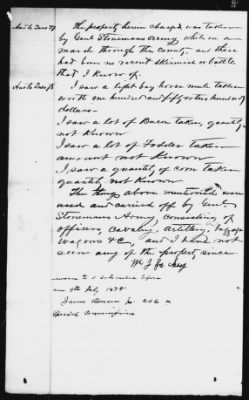 The property herein charged was taken
by Genl Stonemans Army, while on a
march through the county, and there
had been no recent skirmish or battle
that I know of.
I saw a light bay horse mule taken
worth one hundred and fifty or two hundred
dollars
I saw a lot of Bacon taken, quantity
not Known
I saw a lot of Fodder taken
amount not Known
I saw a quantity of corn taken
quantity not Known
The things above mentioned were
used and carried off by Genl
Stonemans Army, consisting of
officers, cavalry, artillery, baggage
wagons &C, and I have not
seen any of the property since
W. J.
sworn to & subscribed before
me Feby 1878
James
Special Commissioner